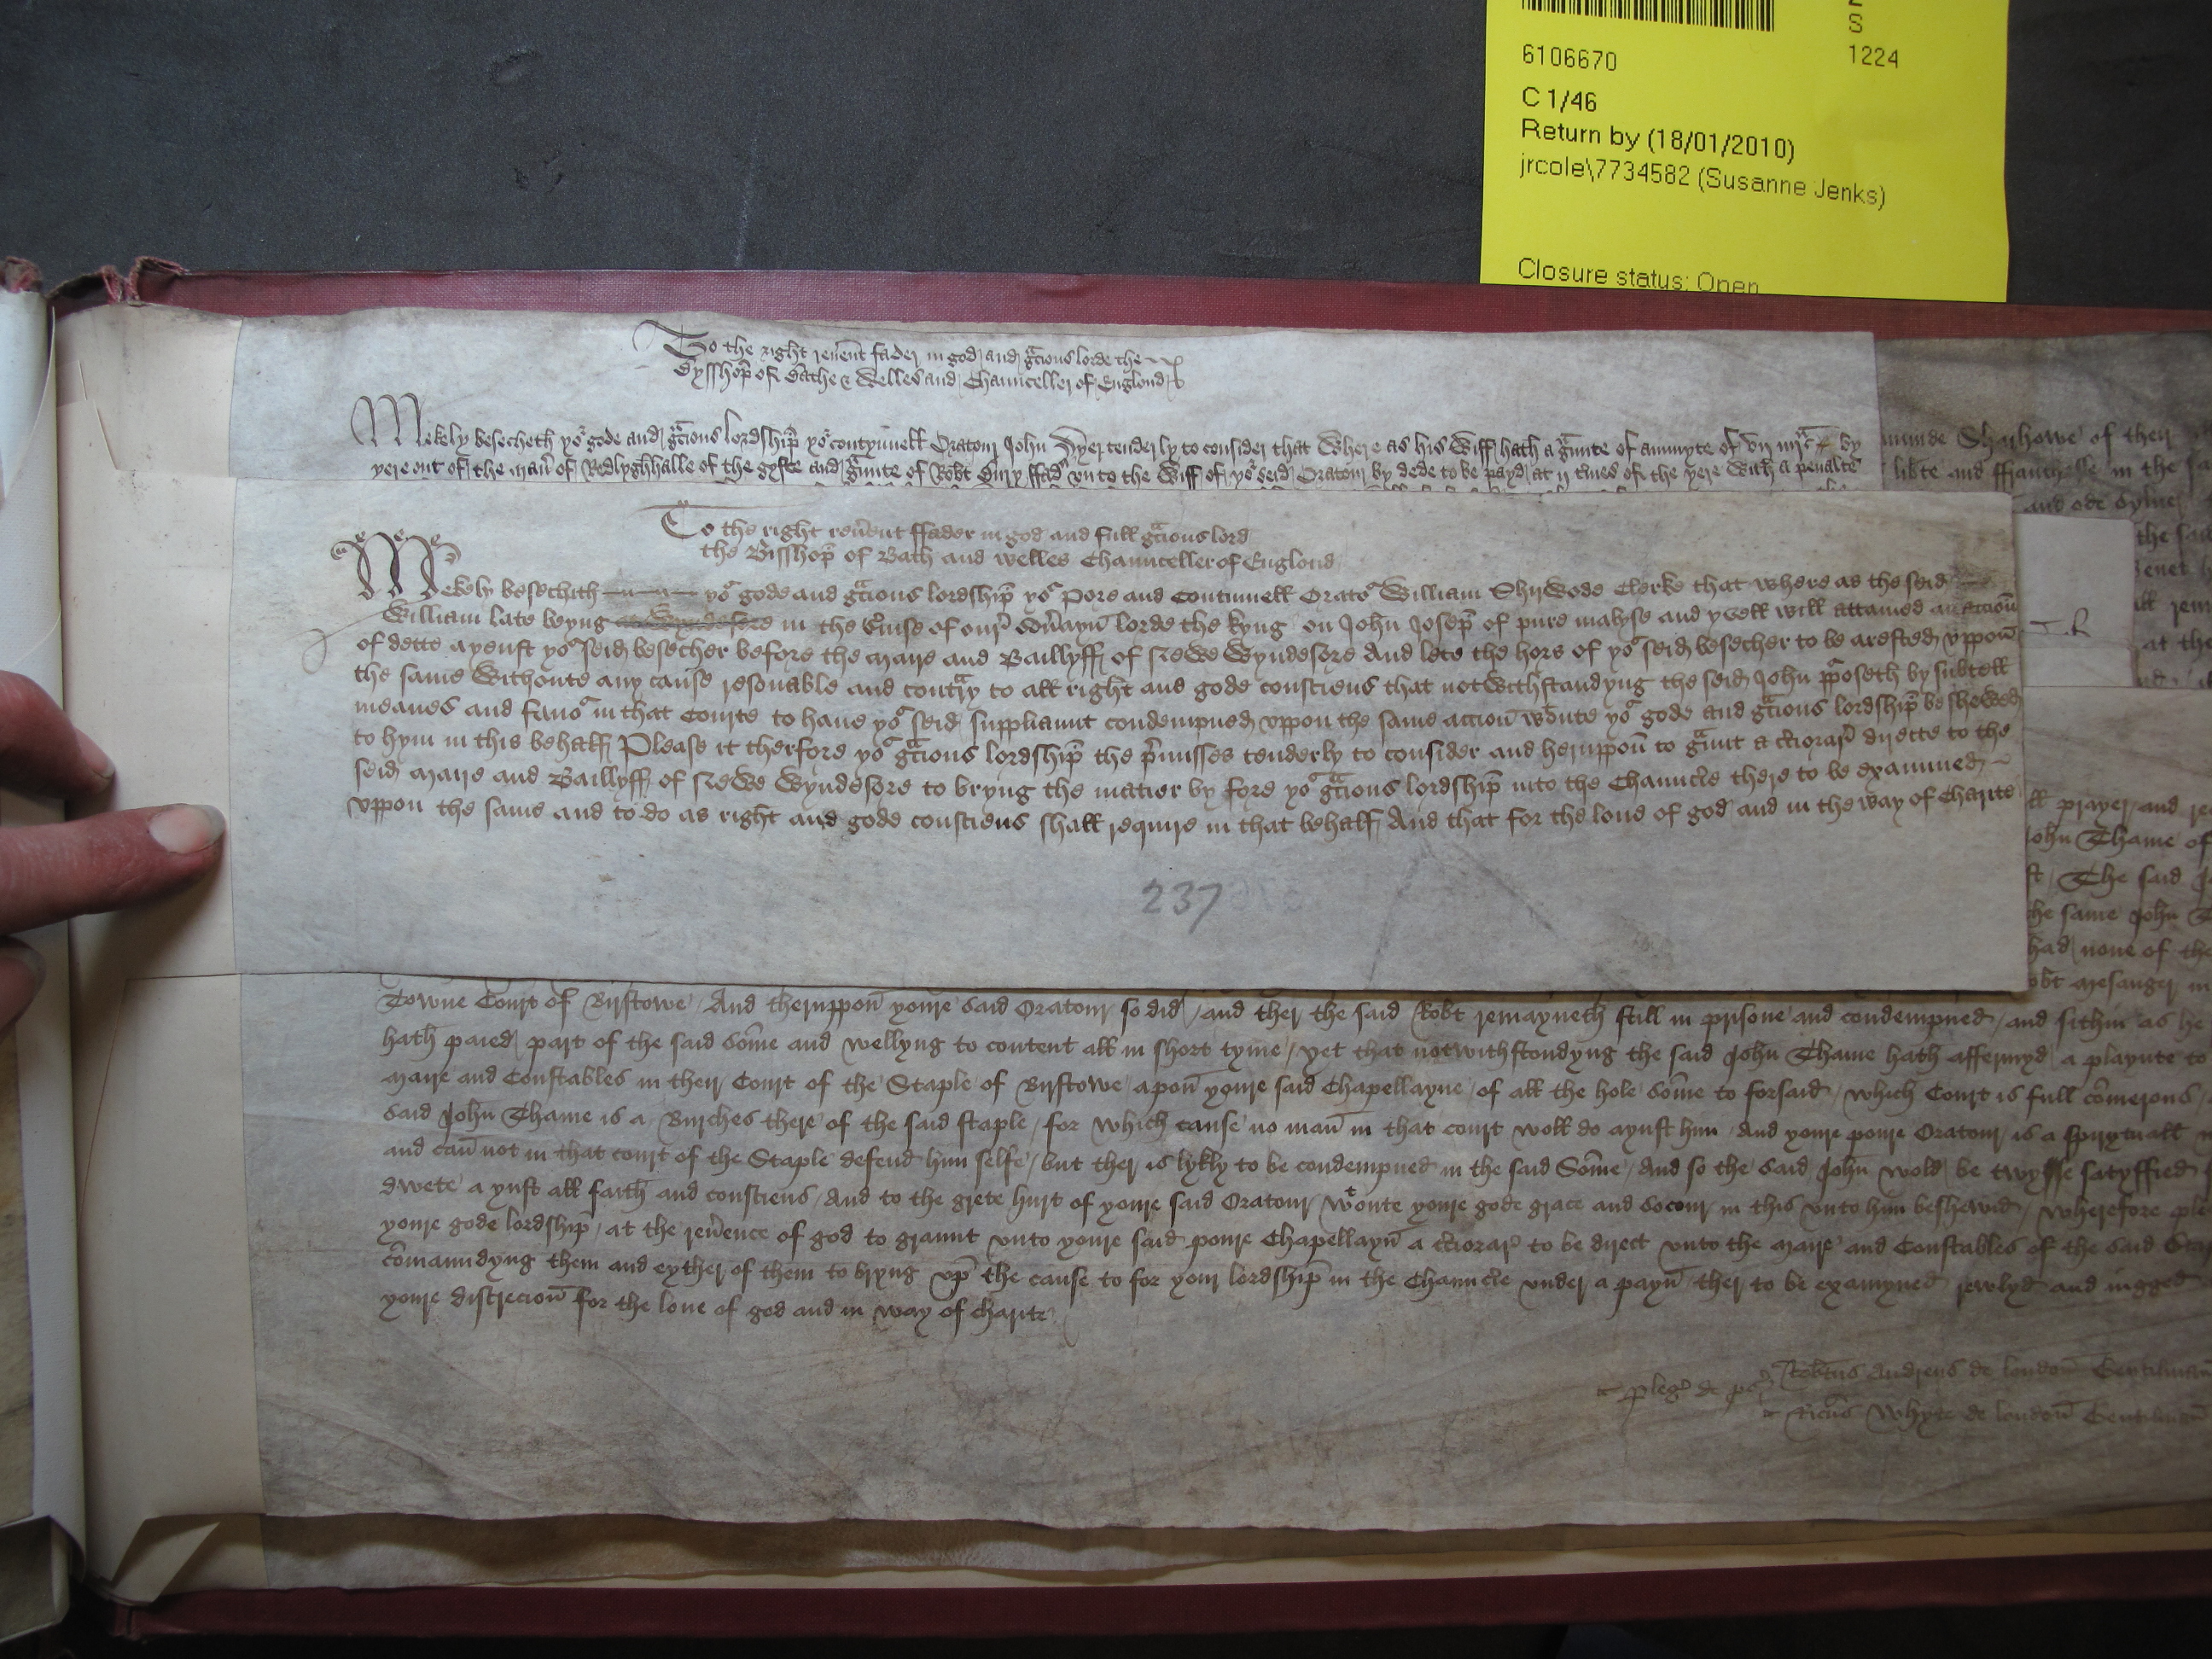 2
S
1224
6106670
C 1/46
Return by (18/01/2010)
jrcole\7734582 (Susanne Jenks)
Closure status: Open
To the right reu̅ent fader in god and gͣcious lorde the
Bysshop̅ of Bathe & Welles and Chaunceller of Englond
Mekely besecheth yoͬ gode and gͣcious lordship̅ yoͬ contynuell Oratour John tenderly to consider that Where as his Wiff hath a gͣunte of annuyte of by
yere out of the man̅ of Redlyghhalle of the gyfte and gͣunte of Rob̅t Bury vn to the Wiff of yoͬ seid Oratour by dede to be payd at ij tmes of the yere With a penalte
To the right reu̅ent ffader in god and full gͣcious lord
the Bisshop̅ of Bath and Welles Chaunceller of Englond
Mekely besechith yoͬ gode and gͣcious lordship̅ yoͬ pore and contynuell Oratoͬ William Shyrwode Clerke that where as the seid
William late beyng in the s̅uise of our̅ sou̅ayn̅ lorde the kyng on John Josep̅ of pure malyse and yvell will attamed an accion̅
of dette ayenst yoͬ seid besecher before the Maire and Baillyff of Newe Wyndesore And lete the hors of yoͬ seid besecher to be arested vppon̅
the same Withoute any cause resonable and contͣry to all right and gode consciens that notwithstandyng the seid John p̅poseth by subtell
meanes and fauoͬ in that Courte to haue yoͬ seid suppliaunt condempned vppon the same accion̅ wͭoute yoͬ gode and gͣcious lordship̅ be shewed
to hym in this behalf Please it therfore yoͬ gͣcious lordship̅ the p̅misses tenderly to consider and heruppon̅ to gͣunt a c̅tiorar̅ directe to the
seid Maire and Baillyff of Newe Wyndesore to bryng the matier by fore yoͬ gͣcious lordship̅ into the Chaunc̅ie there to be examined
vppon the same and to do as right and gode consciens shall require in that behalf And that for the loue of god and in the way of Charite
237
Towne Court of Birstowe And theruppon̅ youre said Oratour so did / and ther the said Rob̅t remayneth still in prisone and condempned / and sithin as he
hath paied part of the said so̅me and wellyng to content all in short tyme / yet that notwithstondyng the said John Thame hath affermyd a playnte to
Maire and Constables in their Court of the Staple of Birstowe apon̅ youre said Chapellayne of all the hole so̅me to forsaid / which Court is full co̅merous
said John Thame is a Burches there of the said staple / for which cause no man̅ in that court woll do aynst him And youre poure Oratour is a spirytuall
and can̅ not in that court of the Staple defend him selfe / but ther is lykly to be condempned in the said So̅me / And so the said John wold be twysse satysfied
dwete a ynst all faith and consciens / And to the grete hurt of youre said Oratour wͭoute youre gode grace and socour in this vnto him beshewid / Wherefore
youre gode lordship̅ / at the reu̅ence of god to graunt vnto youre said poure Chapellayn̅ a c̅tiorar̅ to be direct vnto the Maire and Constables of the said
co̅maundyng them and eyther of them to bryng vp̅ the cause to for your lordship̅ in the Chaunc̅ie vnder a payn̅ ther to be examyned rewlyd and iugged
youre discrecion̅ for the loue of god and in way of charite
pleg̅ de ps̅ Rob̅tus Andreus de london̅ Gentilman
Ric̅us Whyte de london̅ Gentilman̅
munde Sharhowe of their
lib̅te and ffraunchesse in the
and
the
at the
ll prayer and
John Thame of
The said
the same John
had none of the
ob̅t Mesanger in